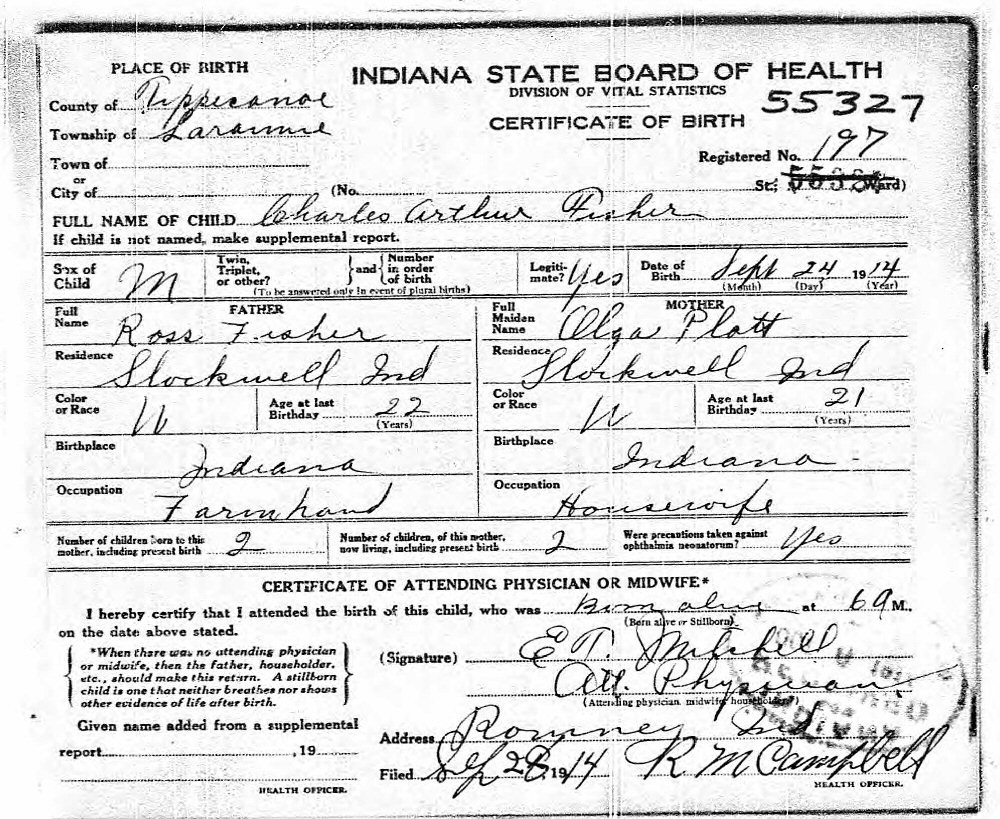 PLACE OF BIRTH
INDIANA STATE BOARD OF HEALTH
DIVISION OF VITAL STATISTICS
55327
County of Tippecanoe
Township of Laramie
CERTIFICATE OF BIRTH
Town of
Registered No. 197
or
City of (No. St; Ward)
FULL NAME OF CHILD Charles Arthur Fisher
If child is not named, make supplemental report.
Sex of Child M Twin, Triplet, or other? } and { Number in order of birth Legiti- mate? Yes Date of Birth Sept 24 1914
(To be answered only in event of plural births) (Month) (Day) (Year)
FATHER MOTHER
Full Name Ross Fisher Full Maiden Name Olga Platt
Residence Stockwell Ind Residence Stockwell Ind
Color or Race W Age at last Birthday 22 (Years) Color or Race W Age at last Birthday 21 (Years)
Birthplace Indiana Birthplace Indiana
Occupation Farmhand Occupation Housewife
Number of children born to this mother, including present birth 2 Number of children, of this mother, now living, including present birth 2 Were precautions taken against ophthalmia neonatorum? Yes
CERTIFICATE OF ATTENDING PHYSICIAN OR MIDWIFE*
I hereby certify that I attended the birth of this child, who was Born alive at 6 A M.,
(Born alive or Stillborn)
on the date above stated.
*When there was no attending physician
or midwife, then the father, householder,
etc., should make this return. A stillborn
child is one that neither breathes nor shows
other evidence of life after birth.
(Signature) E T. Mitchell
Att. Physician
(Attending physician, midwife, householder)
Given name added from a supplemental
report , 19
Address Romney Ind
Filed Sep 28, 1914 R M Campbell
HEALTH OFFICER. HEALTH OFFICER.